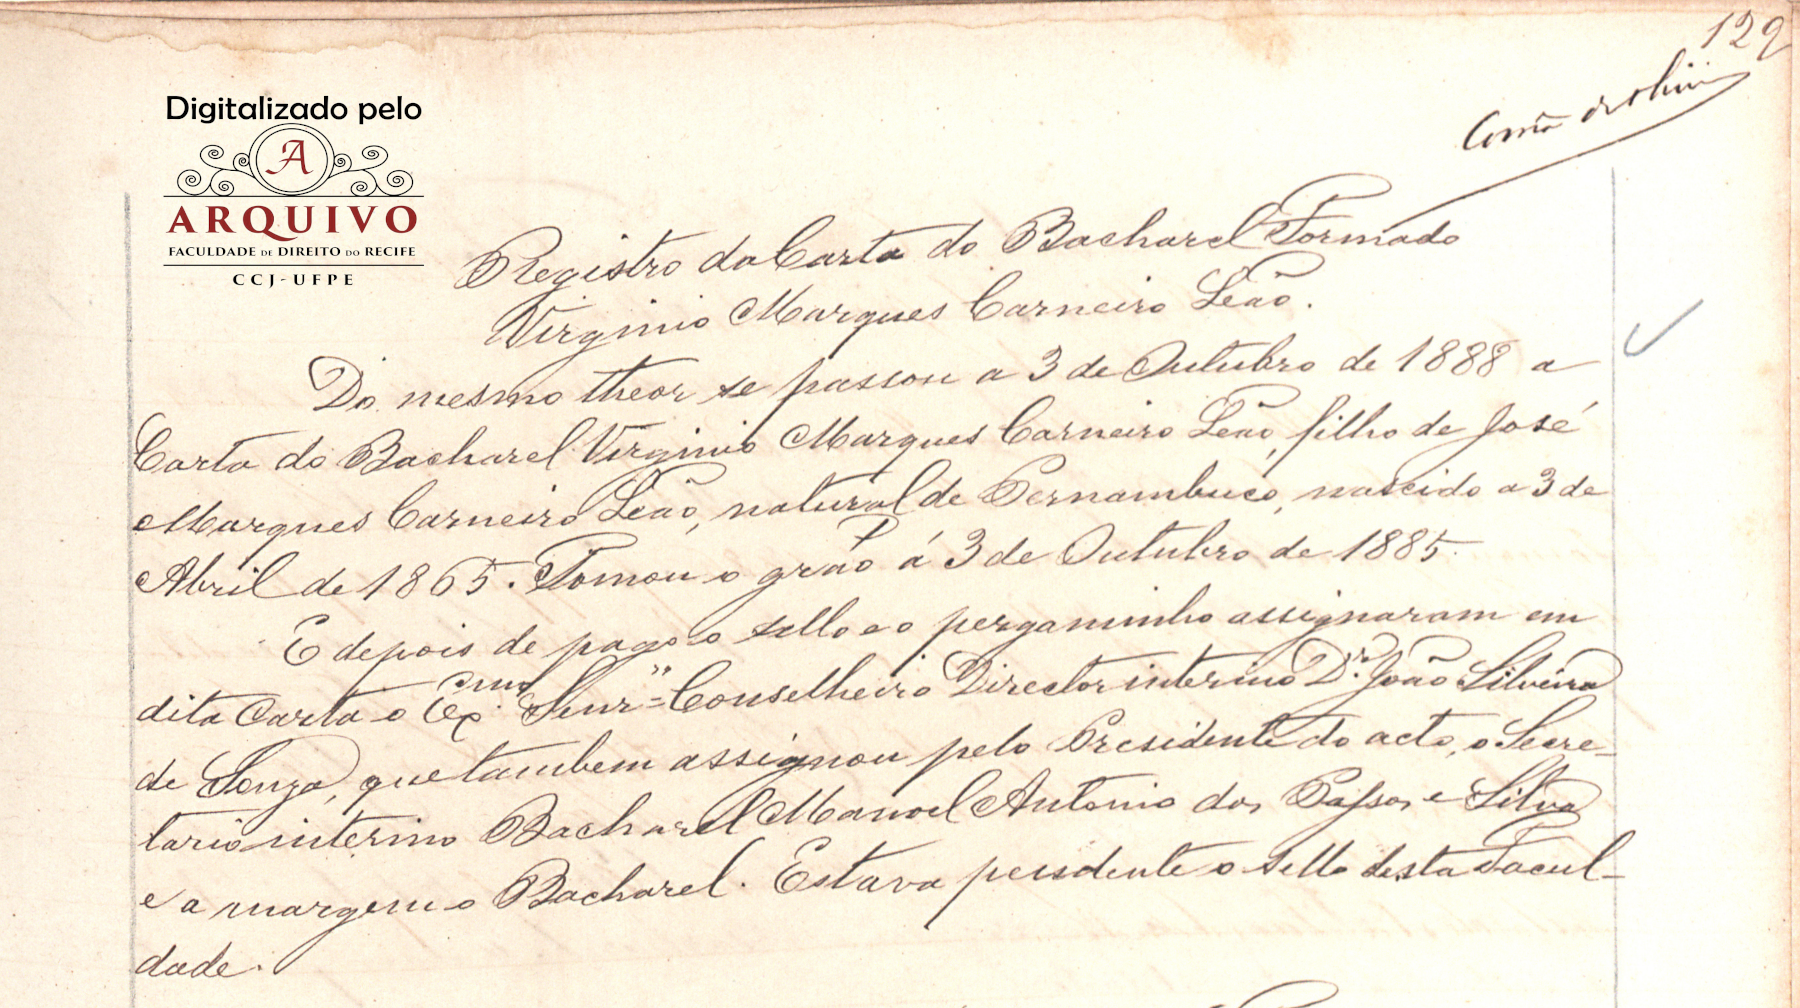 129
Digitalizado pelo
A
ARQUIVO
FACULDADE DE DIREITO DO RECIFE
CCJ-UFPE
Registro da Carta do Bacharel Formado
Virginio Marques Carneiro Leão.
Do mesmo theor se passou a 3 de Outubro de 1888 a
Carta do Bacharel Virginio Marques Carneiro Leão, filho de José
Marques Carneiro Leão, natural de Pernambuco, nascido a 3 de
Abril de 1865. Tomou o gráo á 3 de Outubro de 1885.
E depois de pago o sello e o pergaminho assignaram em
dita Carta o Ex.mo Senr. Conselheiro Director interino Dr. João Silveira
de Souza, que tambem assignou pelo Presidente do acto, o Secre-
tario interino Bacharel Manoel Antonio dos Passos e Silva
e a margem o Bacharel. Estava pendente o sello desta Facul-
dade.